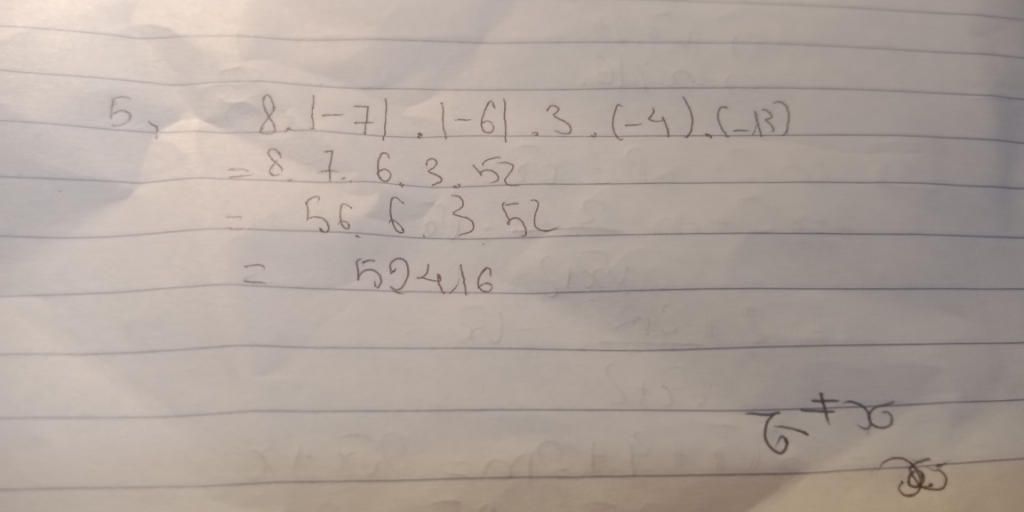 5, 8. |-7| . |-6| . 3 . (-4) . (-13)
= 8. 7. 6. 3. 52
= 56. 6. 3 52
= 52416